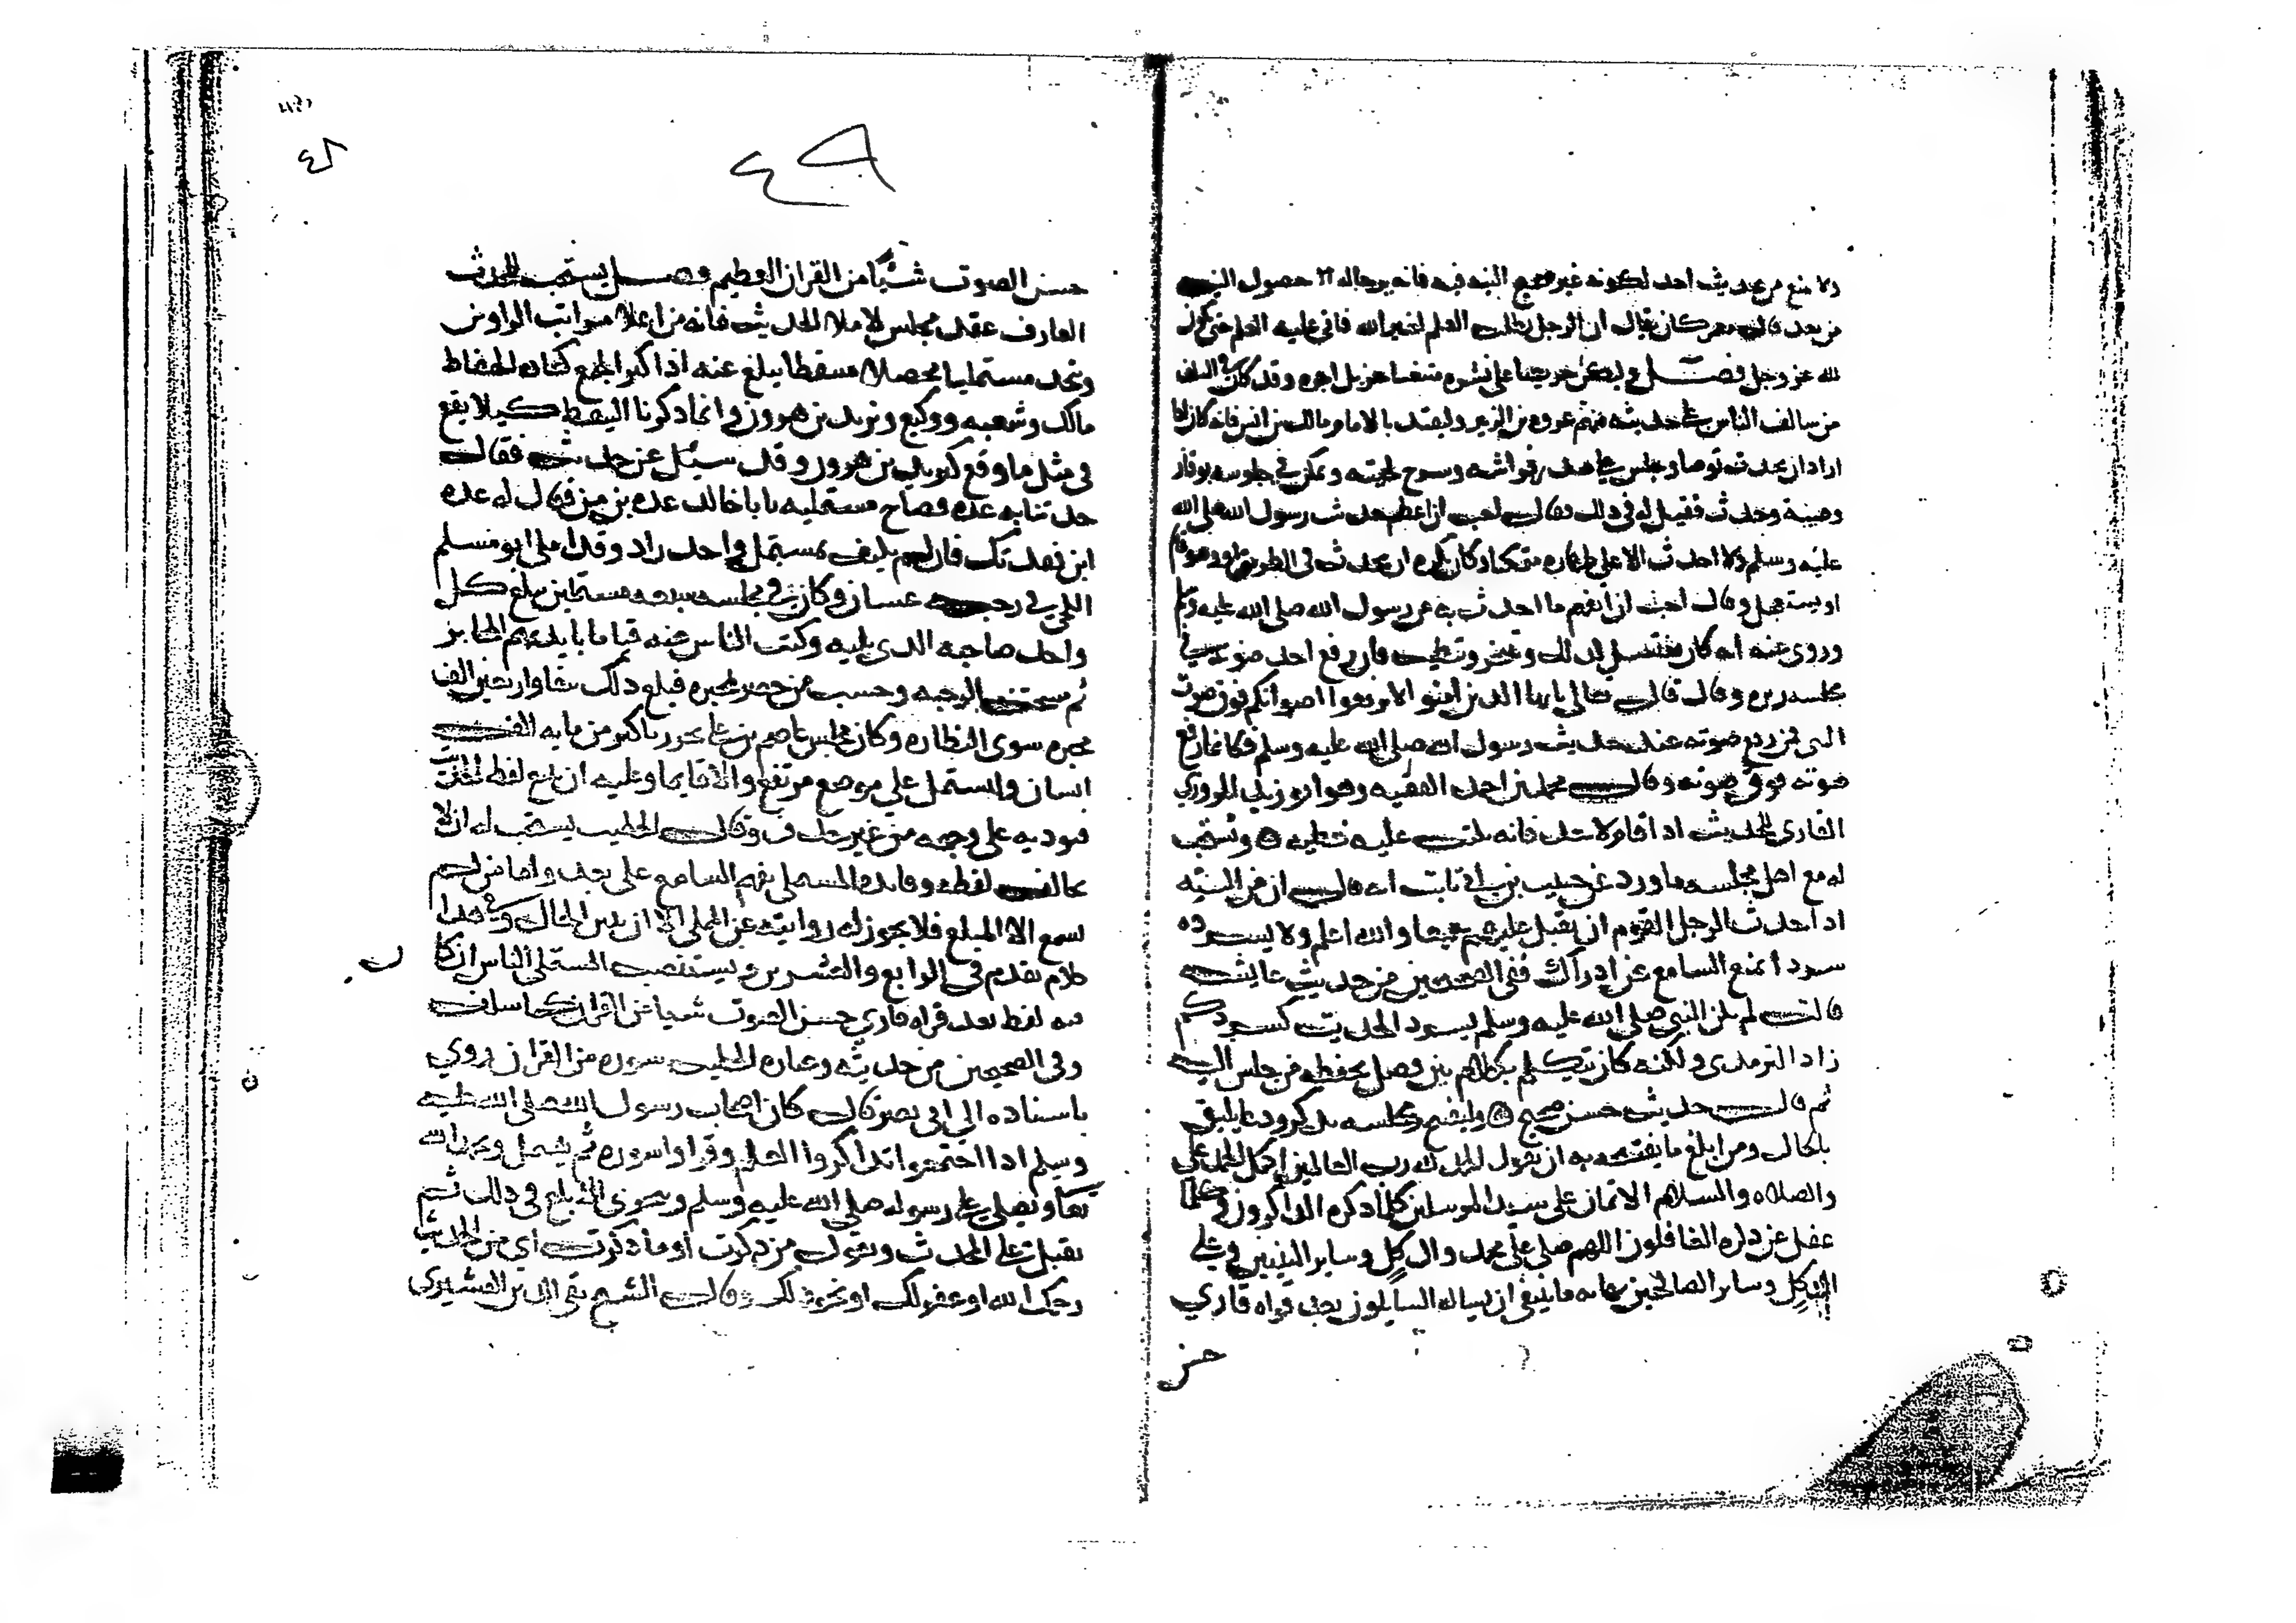 ولا يمنع من تحديث احد لكونه غير صحيح النيه فيه فانه يرجا له حصول النيه
من بعد قال معمر كان يقال ان الرجل يطلب العلم لغير الله فيابى عليه العلم حتى يكون
لله عز وجل فصل وليكن حريصا على نشره مبتغيا جزيل اجره وقد كان في السلف
من يتالف الناس على حديثه منهم عروه بن الزبير وليقتد بالامام مالك بن انس فانه كان اذا
اراد ان يحدث توضا وجلس على صدر فراشه وسرح لحيته وتمكن في جلوسه بوقار
وهيبة وحدث فقيل له في ذلك فقال احب ان اعظم حديث رسول الله صلى الله
عليه وسلم ولا احدث الا على طهاره متمكنا وكان يكره ان يحدث في الطريق او وهو قايم
او يستعجل وقال احب ان اتفهم ما احدث به عن رسول الله صلى الله عليه وسلم
وروى عنه انه كان يغتسل لذلك ويتبخر ويتطيب فان رفع احد صوته في
مجلسه زبره وقال قال الله تعالى يايها الذين امنوا لا ترفعوا اصواتكم فوق صوت
النبي فمن رفع صوته عند حديث رسول الله صلى الله عليه وسلم فكانما رفع
صوته فوق صوته وقال محمد بن احمد الفقيه وهو ابو زيد المروزي
القاري لحديث اذا قام لاحد فانه يكتب عليه خطيه ويستحب
له مع اهل مجلسه ما ورد عن حبيب بن ابي ثابت انه قال ان من السنه
اذا حدث الرجل القوم ان يقبل عليهم جميعا والله اعلم ولا يسرده
سردا يمنع السامع عن ادراكه ففي الصحيحين من حديث عايشه
قالت لم يكن النبي صلى الله عليه وسلم يسرد الحديث كسردكم
زاد الترمذي ولكنه كان يتكلم بكلام بين فصل يحفظه من جلس اليه
ثم قال حديث حسن صحيح وليفتح مجلسه بذكر ودعا يليق
بالحال ومن ابلغ ما يفتتحه به ان يقول الحمد لله رب العالمين اكمل الحمد على
والصلاه والسلام الاتمان على سيد المرسلين كلما ذكره الذاكرون وكلما
غفل عن ذكره الغافلون اللهم صلي على محمد وال كل وساير النبيين وعلى
ال كل وساير الصالحين نهايه ما ينبغي ان يساله السايلون بعد قراه قاري
حسن
٤٩
٤٨
حسن الصوت شيئا من القران العظيم فصل يستحب للمحدث
العارف عقد مجلس لاملا الحديث فانه من اعلا مراتب الراوين
ويتخذ مستمليا محصلا متيقظا يبلغ عنه اذا كبر الجمع كعاده الحفاظ
مالك وشعبه ووكيع ويزيد بن هرون وانما ذكرنا التيقظ كيلا يقع
في مثل ما وقع ليزيد بن هرون وقد سيئل عن حديث فقال
حدثنا به عده فصاح مستمليه يابا خالد عده بن من فقال له عده
ابن فقدتك فان لم يكف بمستمل واحد زاد وقد املى ابو مسلم
الكجي في رحبه غسان وكان في مجلسه سبعه مستملين يبلغ كل
واحد صاحبه الذي يليه وكتب الناس عنه قياما بايديهم المحابر
ثم مسحت الرحبه وحسب من حضر بمحبره فبلغ ذلك نيفا واربعين الف
محبره سوى النظاره وكان مجلس عاصم بن علي يحزر باكثر من مايه الف
انسان والمستملى على موضع مرتفع والا قايما وعليه ان يتبع لفظ المحدث
فيوديه على وجهه من غير حذف وقال الخطيب يستحب له ان لا
يخالف لفظه وفايده المستملي يفهم السامع على بعد واما من لم
يسمع الا المبلغ فلا يجوز له روايته عن المملي الا ان يبين الحال وفي هذا
كلام تقدم في الرابع والعشرين ويستنصت المستملي الناس ان كا
ن
فيه لغط بعد قراه قاري حسن الصوت شيئا من القران كما سلف
وفي الصحيحين من حديثه وعباره الخطيب سوره من القران وروي
باسناده الى ابي نضره قال كان اصحاب رسول الله صلى الله عليه
وسلم اذا اجتمعوا تذاكروا العلم وقراوا سوره ثم يبسمل ويحمد الله
تعالى ويصلي على رسوله صلى الله عليه وسلم ويتحرى الابلغ في ذلك ثم
يقبل على المحدث ويقول من ذكرت او ما ذكرت اي من الحديث
رحمك الله او غفر لك او نحو ذلك وقال الشيخ تقي الدين القشيري